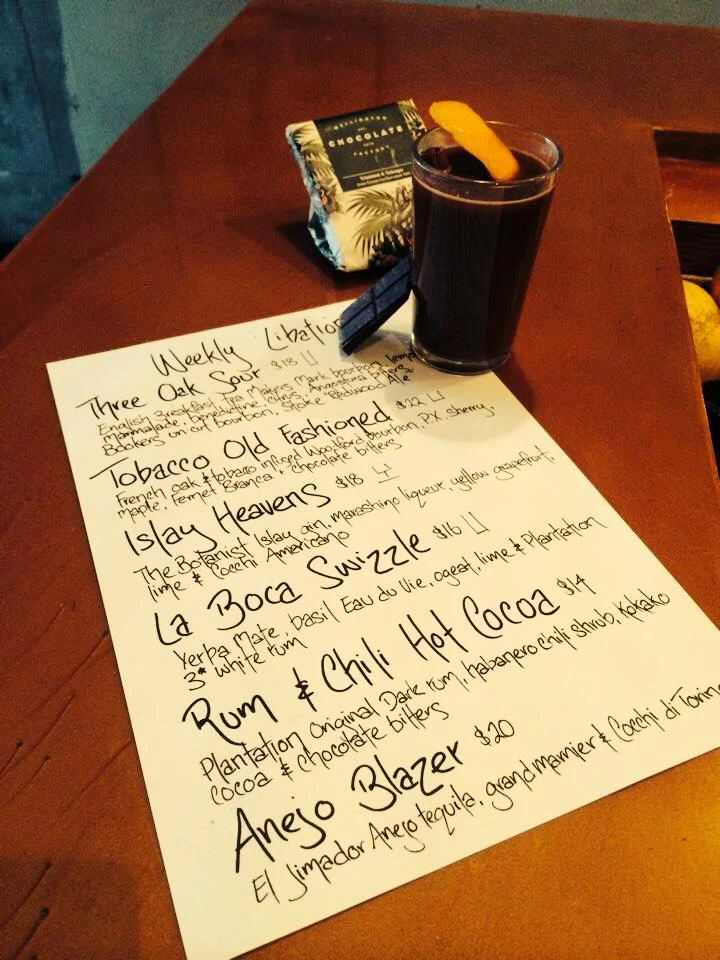 WELLINGTON
CHOCOLATE
FACTORY
Trinidad & Tobago
Weekly Libation
Three Oak Sour $18
English Breakfast Tea Makers Mark bourbon, lemon
marmalade, benedictine, citrus, Angostura Bitters
Bookers un cut bourbon, Stoke Redwood Ale
Tobacco Old Fashioned $22
French oak & tobaco infused Woodford bourbon, P.X sherry,
maple, Fernet Branca & chocolate bitters
Islay Heavens $18
The Botanist Islay gin, marashino liqueur, yellow grapefruit,
lime & Cocchi Americano
La Boca Swizzle $16
Yerba Mate, basil Eau du Vie, ogeat, lime & Plantation
3* white rum
Rum & Chili Hot Cocoa $14
Plantation Original Dark rum, habanero chili shrub, Kokako
cocoa & chocolate bitters
Anejo Blazer $20
El Jimador Anejo tequila, grand marnier & Cocchi di Torino